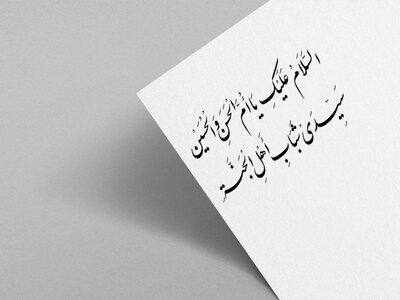 اَلسَّلَامُ عَلَیْکِ یَا أُمَّ الْحَسَنِ وَالْحُسَیْنِ
سَیِّدَیْ شَبَابِ أَهْلِ الْجَنَّةِ